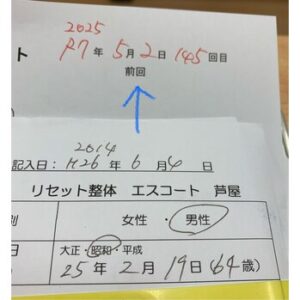 2025
R7年 5月2日 145回目
ト
前回
2014
記入日: H26年 6月4日
リセット整体 エスコート 芦屋
別 女性 ・ 男性
日 大正・昭和・平成
25年 2月 19日(64歳)